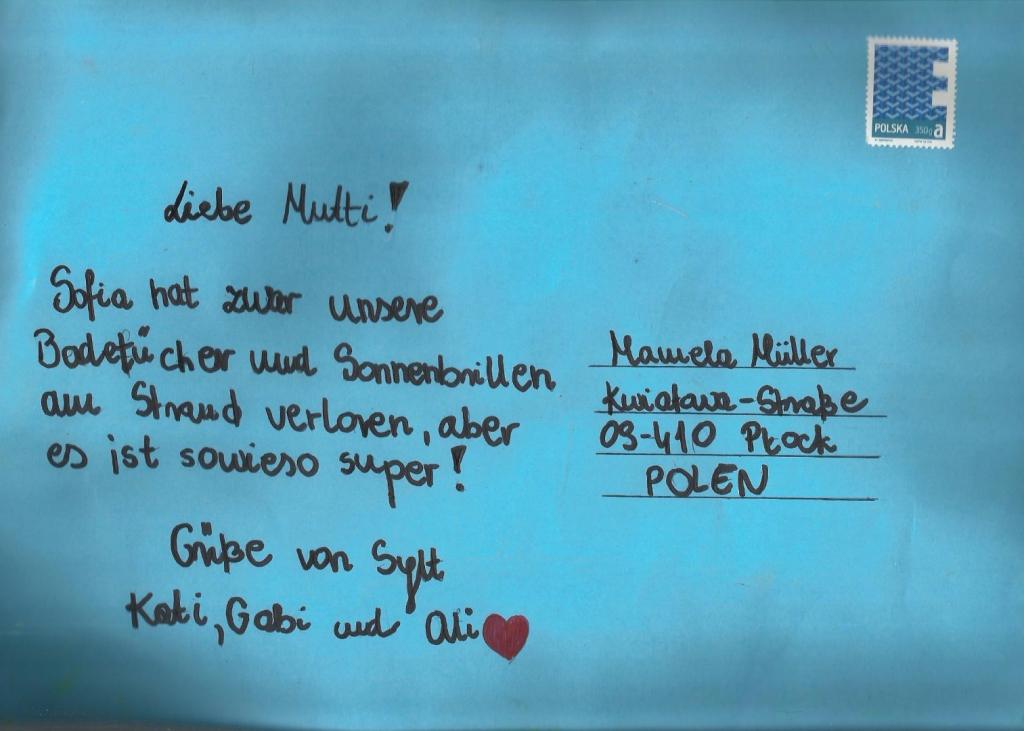 Liebe Mutti!
Sofia hat zwar unsere
Badetücher und Sonnenbrillen
am Strand verloren, aber
es ist sowieso super!
Grüße von Sylt
Kati, Gabi und Ali
Manuela Müller
Kwiatowa-Straße
09-410 Płock
POLEN
POLSKA 350g a